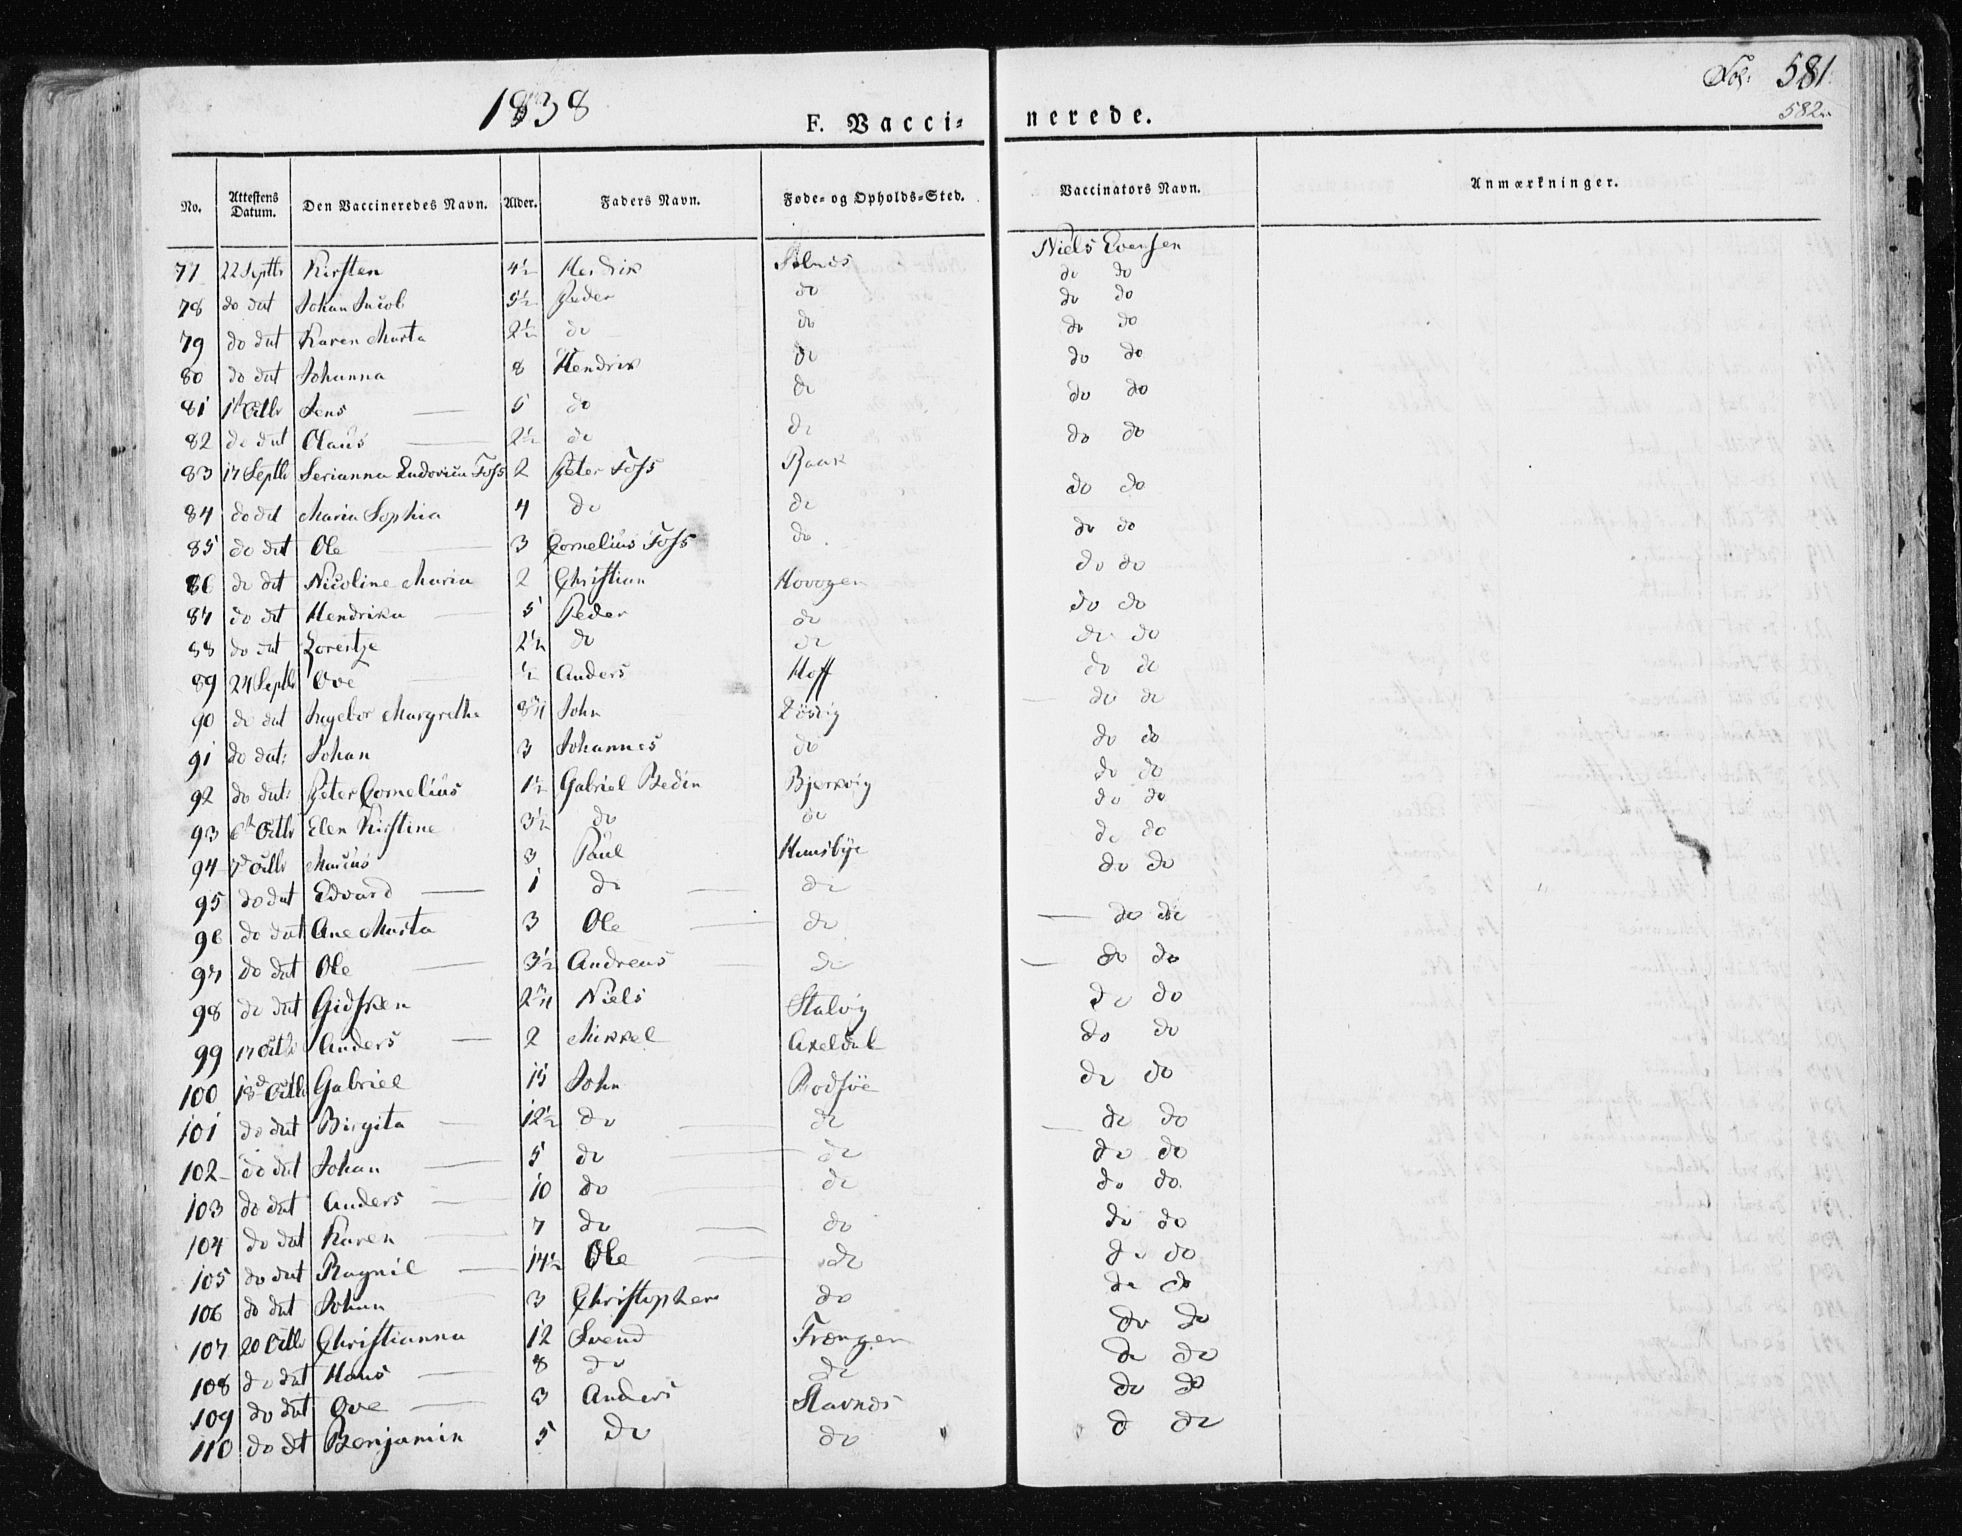 1838
F. Vacci-
nerede.
Fol. 581.
582
No.
Attestens Datum.
Den Vaccineredes Navn.
Alder.
Faders Navn.
Føde- og Opholds-Sted.
Vaccinators Navn.
Anmærkninger.
77 22 Septbr Kirsten 4½ Hendrik Solnæs Niels Evensen
78 do dat Johan Jacob 5½ Peder do do do
79 do dat Karen Marta 2½ do do do do
80 do dat Johanna 8 Hendrik do do do
81 1ste Octbr Jens 5 do do do do
82 do dat Olaus 2½ do do do do
83 17 Septbr Serianna Ludovica Foss 2 Peter Foss Raak do do
84 do dat Maria Sophia 4 do do do do
85 do dat Ole 3 Cornelius Foss do do do
86 do dat Nicoline Maria 2 Christian Hovogen do do
87 do dat Hendrika 5 Peder do do do
88 do dat Lorentze 2½ do do do do
89 24 Septbr Ove ½ Anders Hoff do do
90 do dat Ingebor Margretha John do do
91 do dat: Johan 3 Johannes do do do
92 do dat: Peter Cornelius 1½ Gabriel Bedin Bjerkvig do do
93 6te Octbr Elen Kirstine 3½ do do do do
94 7de Octbr Marcus 3 Paul do do
95 do dat Edvard 1 do do do do
96 do dat Ane Marta 3 Ole do do do
97 do dat Ole 3½ Andreas do do do
98 do dat Gidsken Niels Stalvig do do
99 17 Octbr Anders 2 Mikkel Axeldal do do
100 18de Octbr Gabriel 15 John Rodsøe do do
101 do dat Birgita 12½ do do do do
102 do dat Johan 5 do do do do
103 do dat Anders 10 do do do do
104 do dat Karen 7 do do do do
105 do dat Ragnil 14½ Ole do do do
106 do dat Johan 3 Christopher do do do
107 20 Octbr Christianna 12 Svend Trængen do do
108 do dat Hans 8 do do do do
109 do dat Ove 3 Anders Stavnes do do
110 do dt Benjamin 5 do do d do